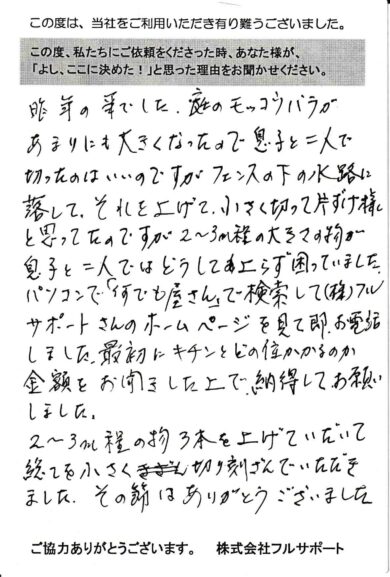 この度は、当社をご利用いただき有り難うございました。
この度、私たちにご依頼をくださった時、あなた様が、
「よし、ここに決めた！」と思った理由をお聞かせください。
昨年の事でした。庭のモッコウバラが
あまりにも大きくなったので息子と二人で
切ったのはいいのですがフェンスの下の水路に
落して、それを上げて、小さく切って片ずけ様
と思ってたのですが2〜3m程の大きさの物が
息子と二人ではどうしても上らず困っていました
パソコンで「何でも屋さん」で検索して(株)フル
サポートさんのホームページを見て即、お電話
しました。最初にキチンとどの位かかるのか
金額をお聞きました上で、納得してお願い
しました。
2〜3m程の物3本を上げていだいて
総てを小さく切り刻ざんでいただき
ました。その節はありがとうございました
ご協力ありがとうございます。 株式会社フルサポート